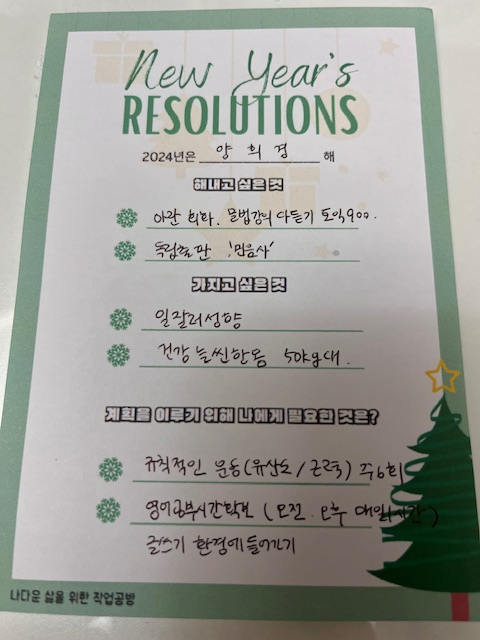 New Year's
RESOLUTIONS
2024년은 양 희 경 해
해내고 싶은 것
야란 회화. 문법강의 다듣기 토익900.
독립출판 '민음사'
가지고 싶은 것
일잘러성향
건강 늘씬한몸 50kg대.
계획을 이루기 위해 나에게 필요한 것은?
규칙적인 운동(유산소/근력) 주6회
영어공부시간확보 (오전. 오후 매일1시간)
글쓰기 환경에 들어가기
나다운 삶을 위한 작업공방